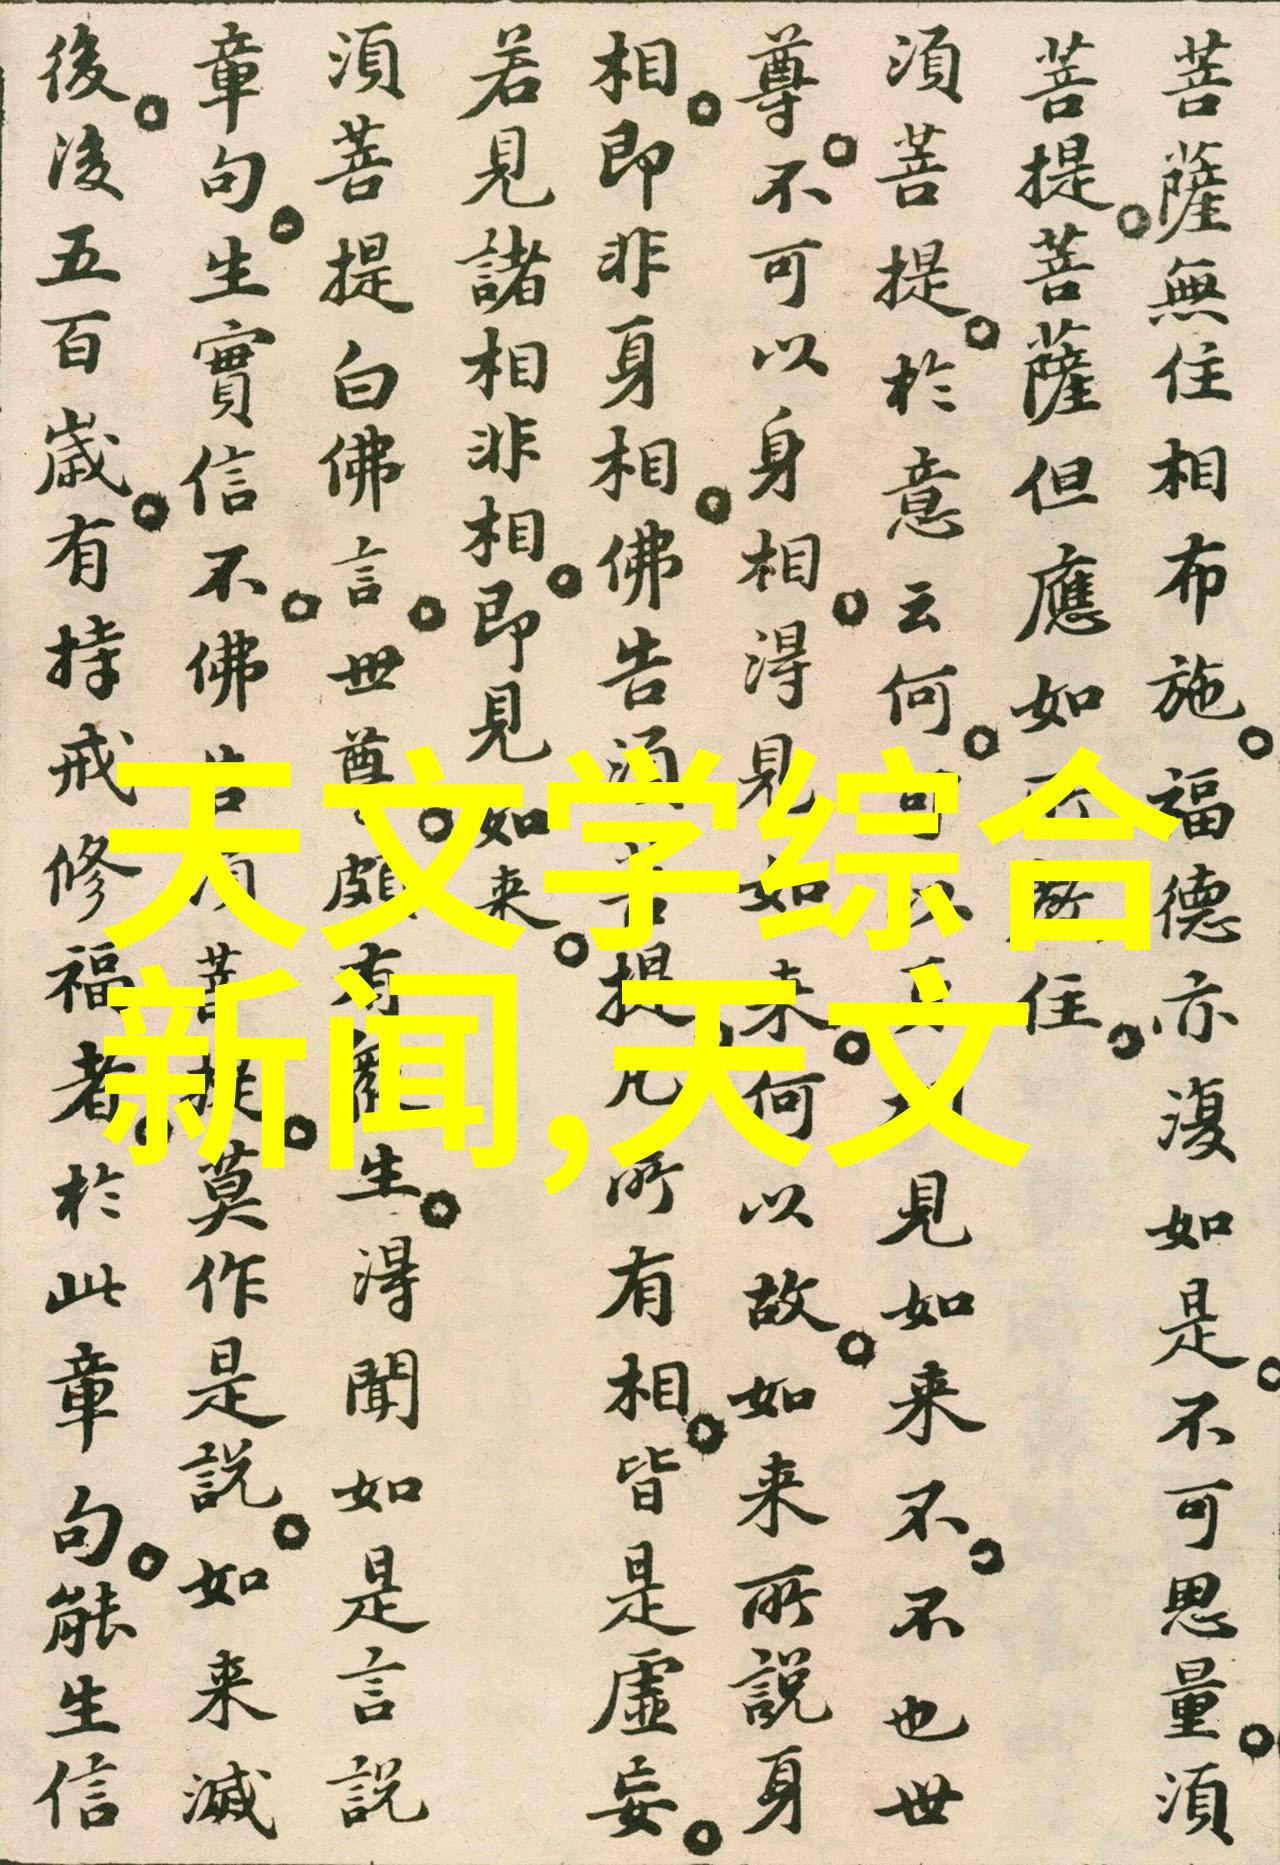 天文学综合
新闻,天文
菩薩無住相布施。福德亦復如是。不可思量。須
菩提。菩薩但應如所教住。
須菩提。於意云何。可以身相見如来不。不也世
尊。不可以身相。得見如来。何以故。如来所說身
相。即非身相。佛告須菩提。凡所有相。皆是虛妄。
若見諸相非相。即見如来。
須菩提白佛言。世尊。頗有眾生。得聞如是言說
章句。生實信不。佛告須菩提。莫作是說。如来滅
後。後五百歲。有持戒修福者。於此章句。能生信